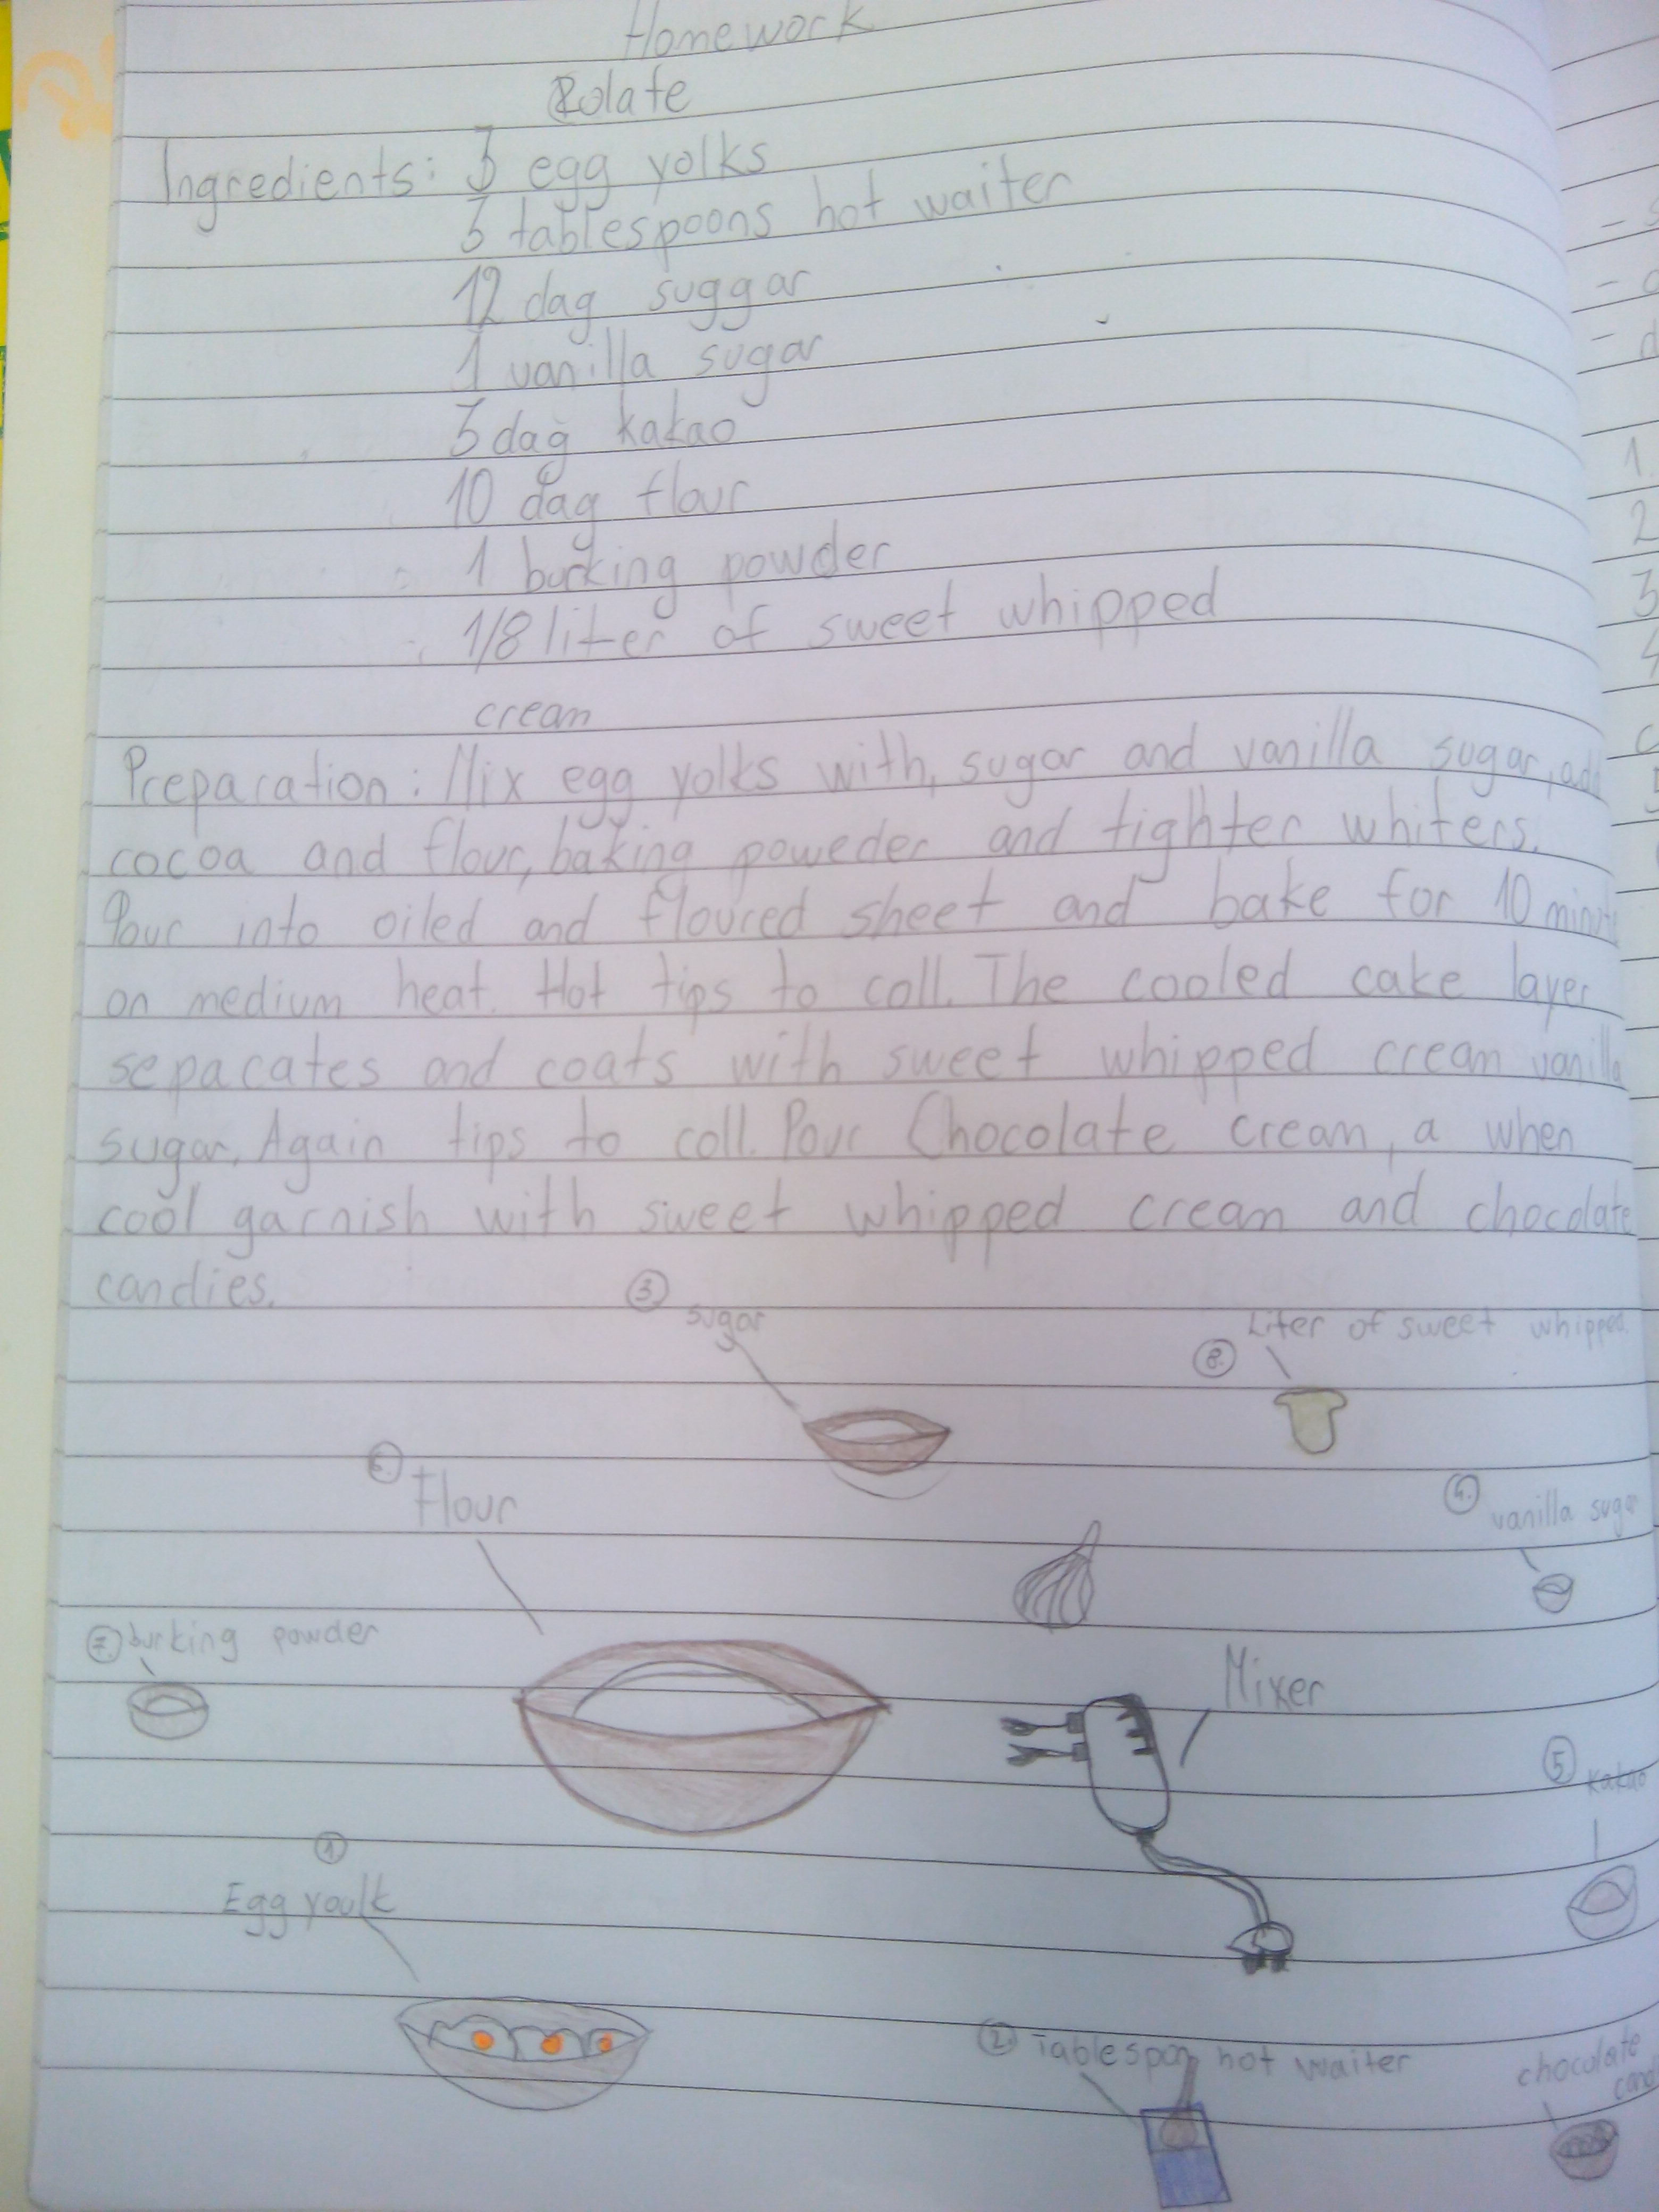 Homework
Rolate
Ingredients: 3 egg yolks
3 tablespoons hot waiter
12 dag suggar
1 vanilla sugar
3 dag kakao
10 dag flour
1 burking powder
1/8 liter of sweet whipped
cream
Preparation: Mix egg yolks with, sugar and vanilla sugar, add
cocoa and flour, baking poweder and tighter whiters.
Pour into oiled and floured sheet and bake for 10 minute
on medium heat. Hot tips to coll. The cooled cake layer
separates and coats with sweet whipped cream vanilla
sugar. Again tips to coll. Pour Chocolate cream, a when
cool garnish with sweet whipped cream and chocolate
candies.
3. sugar
8. Liter of sweet whipped
6. Flour
4. vanilla sugar
7. burking powder
Mixer
5. kakao
1. Egg youlk
2. Tablespon hot waiter
chocolate
cand
1.
2
3
4